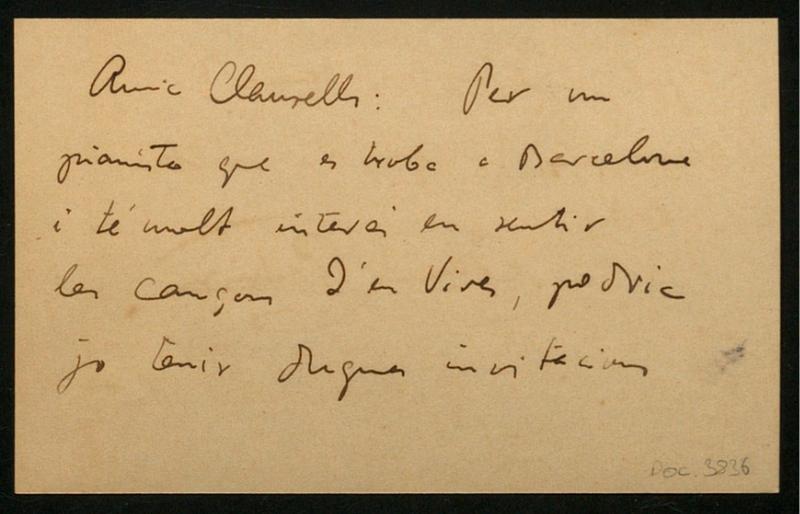 Amic Clausells: Per un
pianista que es troba a Barcelona
i té molt interès en sentir
les cançons d'en Vives, podria
jo tenir dugues invitacions
Doc. 3836